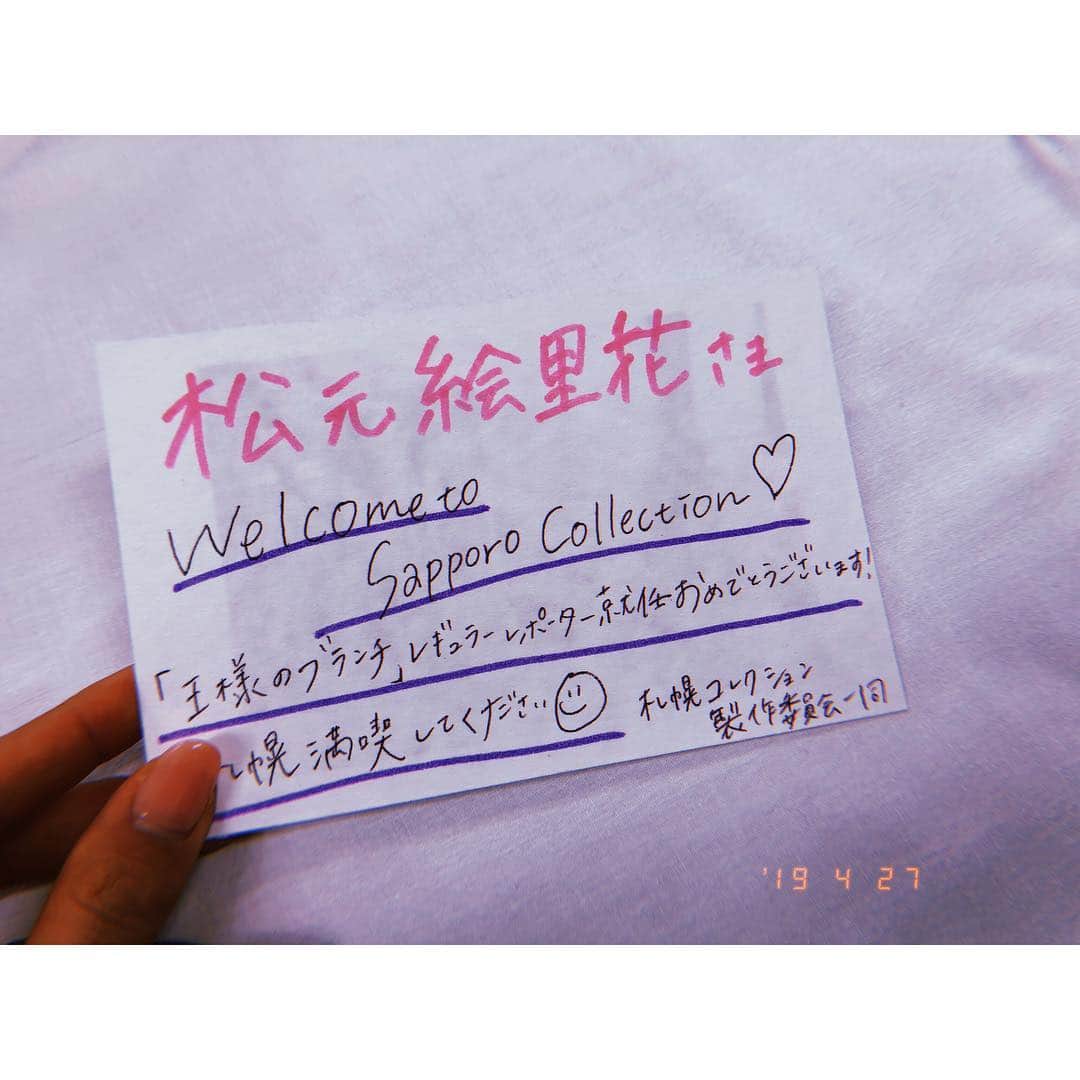 松元絵里花さま
Welcome to
Sapporo Collection♡
「王様のブランチ」レギュラーレポーター就任おめでとうございます!
札幌満喫してください☺
札幌コレクション
製作委員会一同
'19 4 27